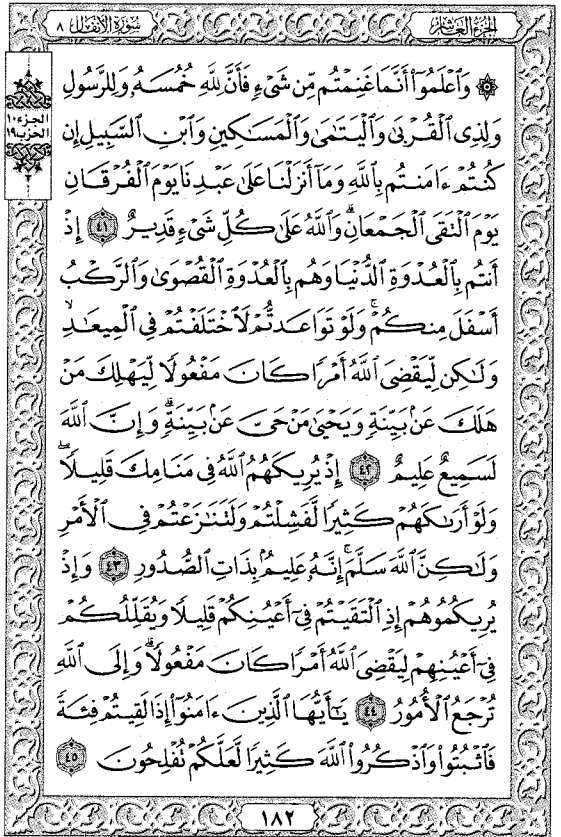 الجزء العاشر
سورة الأنفال ٨
الجزء ١٠
الحزب ١٩
۞ وَٱعۡلَمُوٓاْ أَنَّمَا غَنِمۡتُم مِّن شَيۡءٖ فَأَنَّ لِلَّهِ خُمُسَهُۥ وَلِلرَّسُولِ
وَلِذِي ٱلۡقُرۡبَىٰ وَٱلۡيَتَٰمَىٰ وَٱلۡمَسَٰكِينِ وَٱبۡنِ ٱلسَّبِيلِ إِن
كُنتُمۡ ءَامَنتُم بِٱللَّهِ وَمَآ أَنزَلۡنَا عَلَىٰ عَبۡدِنَا يَوۡمَ ٱلۡفُرۡقَانِ
يَوۡمَ ٱلۡتَقَى ٱلۡجَمۡعَانِۗ وَٱللَّهُ عَلَىٰ كُلِّ شَيۡءٖ قَدِيرٌ ٤١ إِذۡ
أَنتُم بِٱلۡعُدۡوَةِ ٱلدُّنۡيَا وَهُم بِٱلۡعُدۡوَةِ ٱلۡقُصۡوَىٰ وَٱلرَّكۡبُ
أَسۡفَلَ مِنكُمۡۚ وَلَوۡ تَوَاعَدتُّمۡ لَٱخۡتَلَفۡتُمۡ فِي ٱلۡمِيعَٰدِ
وَلَٰكِن لِّيَقۡضِيَ ٱللَّهُ أَمۡرٗا كَانَ مَفۡعُولٗا لِّيَهۡلِكَ مَنۡ
هَلَكَ عَنۢ بَيِّنَةٖ وَيَحۡيَىٰ مَنۡ حَيَّ عَنۢ بَيِّنَةٖۗ وَإِنَّ ٱللَّهَ
لَسَمِيعٌ عَلِيمٌ ٤٢ إِذۡ يُرِيكَهُمُ ٱللَّهُ فِي مَنَامِكَ قَلِيلٗاۖ
وَلَوۡ أَرَىٰكَهُمۡ كَثِيرٗا لَّفَشِلۡتُمۡ وَلَتَنَٰزَعۡتُمۡ فِي ٱلۡأَمۡرِ
وَلَٰكِنَّ ٱللَّهَ سَلَّمَۚ إِنَّهُۥ عَلِيمُۢ بِذَاتِ ٱلصُّدُورِ ٤٣ وَإِذۡ
يُرِيكُمُوهُمۡ إِذِ ٱلۡتَقَيۡتُمۡ فِيٓ أَعۡيُنِكُمۡ قَلِيلٗا وَيُقَلِّلُكُمۡ
فِيٓ أَعۡيُنِهِمۡ لِيَقۡضِيَ ٱللَّهُ أَمۡرٗا كَانَ مَفۡعُولٗاۗ وَإِلَى ٱللَّهِ
تُرۡجَعُ ٱلۡأُمُورُ ٤٤ يَٰٓأَيُّهَا ٱلَّذِينَ ءَامَنُوٓاْ إِذَا لَقِيتُمۡ فِئَةٗ
فَٱثۡبُتُواْ وَٱذۡكُرُواْ ٱللَّهَ كَثِيرٗا لَّعَلَّكُمۡ تُفۡلِحُونَ ٤٥
١٨٢